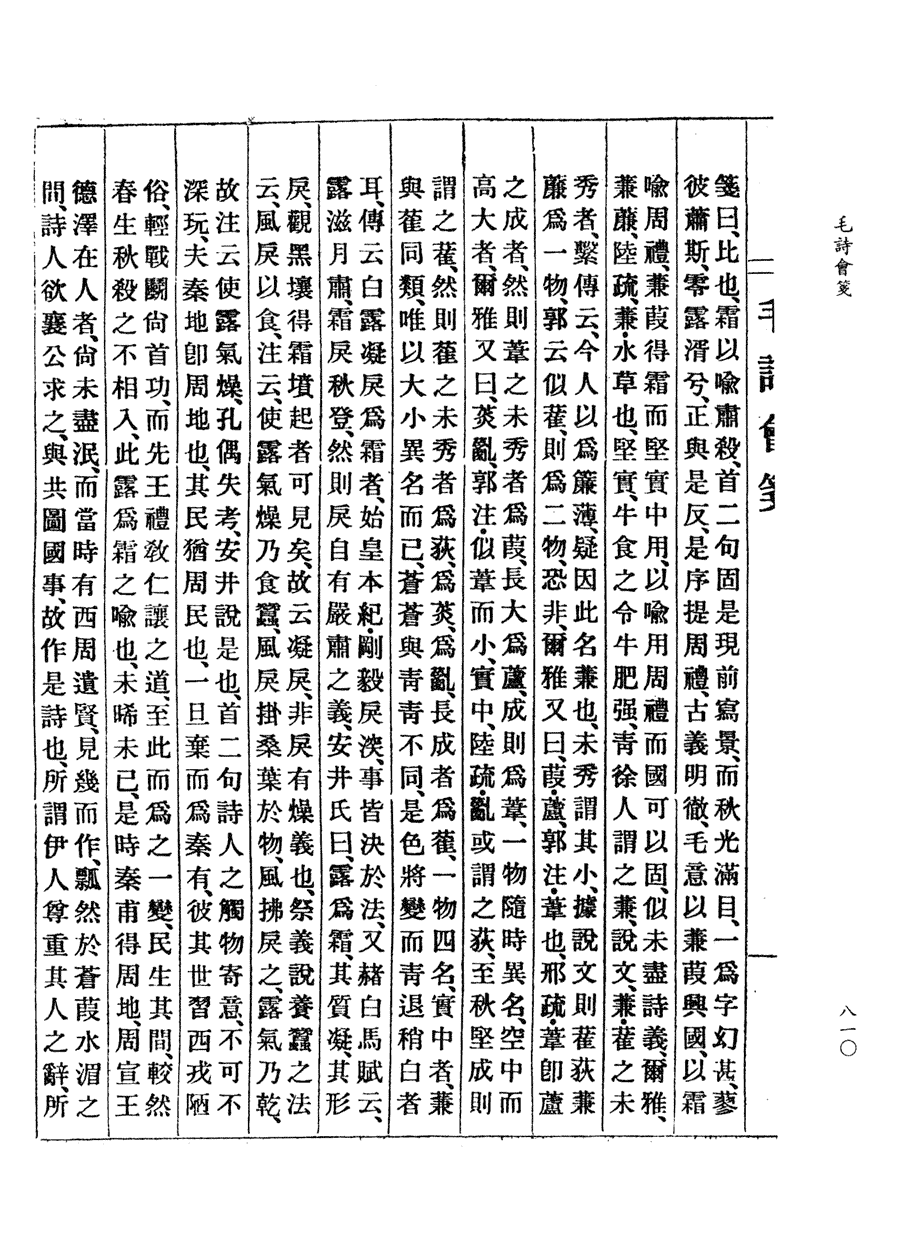 毛詩會箋
八一〇
毛詩會箋
箋曰、比也、霜以喩肅殺、首二句固是現前寫景、而秋光滿目、一爲字幻甚、蓼
彼蕭斯、零露湑兮、正與是反、是序提周禮、古義明徹、毛意以蒹葭興國、以霜
喩周禮、蒹葭得霜而堅實中用、以喩用周禮而國可以固、似未盡詩義、爾雅、
蒹薕、陸疏、蒹・水草也、堅實、牛食之令牛肥强、靑徐人謂之蒹、說文、蒹・萑之未
秀者、繫傳云、今人以爲簾薄、疑因此名蒹也、未秀謂其小、據說文則萑荻蒹
薕爲一物、郭云似萑、則爲二物、恐非、爾雅又曰、葭・蘆、郭注・葦也、邢疏・葦卽蘆
之成者、然則葦之未秀者爲葭、長大爲蘆、成則爲葦、一物隨時異名、空中而
高大者、爾雅又曰、菼亂、郭注・似葦而小、實中、陸疏・亂或謂之荻、至秋堅成則
謂之萑、然則萑之未秀者爲荻、爲菼、爲亂、長成者爲萑、一物四名、實中者、蒹
與萑同類、唯以大小異名而已、蒼蒼與靑靑不同、是色將變而靑退稍白者
耳、傳云白露凝戾爲霜者、始皇本紀・剛毅戾深、事皆決於法、又赭白馬賦云、
露滋月肅、霜戾秋登、然則戾自有嚴肅之義、安井氏曰、露爲霜、其質凝、其形
戾、觀黑壤得霜墳起者可見矣、故云凝戾、非戾有燥義也、祭義說養蠶之法
云、風戾以食、注云、使露氣燥乃食蠶、風戾掛桑葉於物、風拂戾之、露氣乃乾、
故注云使露氣燥、孔偶失考、安井說是也、首二句詩人之觸物寄意、不可不
深玩、夫秦地卽周地也、其民猶周民也、一旦棄而爲秦有、彼其世習西戎陋
俗、輕戰鬭尙首功、而先王禮敎仁讓之道、至此而爲之一變、民生其間、較然
春生秋殺之不相入、此露爲霜之喩也、未晞未已、是時秦甫得周地、周宣王
德澤在人者、尙未盡泯、而當時有西周遺賢、見幾而作、瓢然於蒼葭水湄之
間、詩人欲襄公求之、與共圖國事、故作是詩也、所謂伊人尊重其人之辭、所